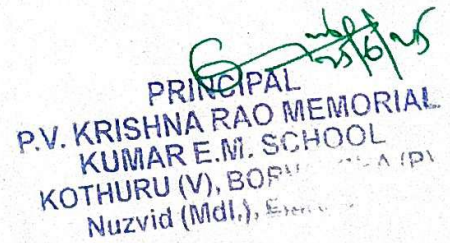 25/6/25
PRINCIPAL
P.V. KRISHNA RAO MEMORIAL
KUMAR E.M. SCHOOL
KOTHURU (V),
Nuzvid (Mdl.),